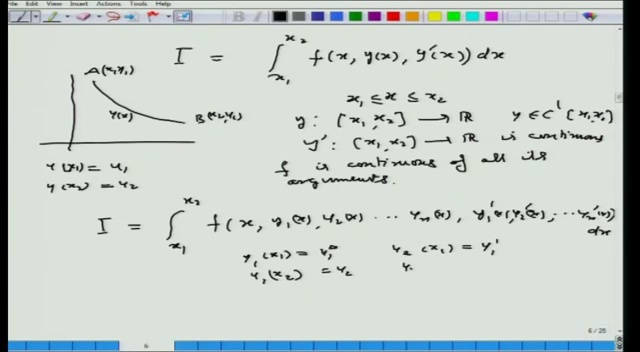 File Edit View Insert Actions Tools Help
I = ∫_{x₁}^{x₂} f(x, y(x), y'(x)) dx
A(x₁, y₁)
y(x)
B(x₂, y₂)
x₁ ≤ x ≤ x₂
y : [x₁, x₂] → ℝ y ∈ C'[x₁, x₂]
y' : [x₁, x₂] → ℝ is continuous
f is continuous of all its arguments.
y(x₁) = y₁
y(x₂) = y₂
I = ∫_{x₁}^{x₂} f(x, y₁(x), y₂(x) ... yₙ(x), y₁'(x), y₂'(x), ... yₙ'(x)) dx
y₁(x₁) = y₁⁰ y₂(x₁) = y₁'
y₁(x₂) = y₂ y
6 / 25
6